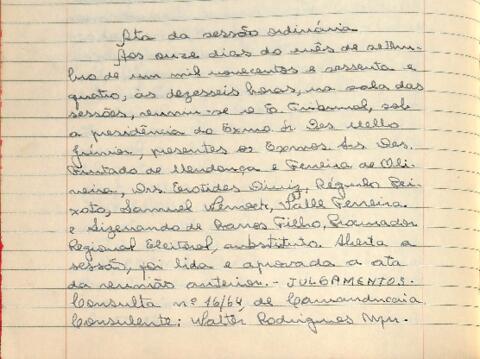 Ata da sessão ordinária
Aos onze dias do mês de setem-
bro de um mil novecentos e sessenta e
quatro, às dezesseis horas, na sala das
sessões, reuniu-se o E. Tribunal, sob
a presidência do Exmo Sr Des Mello
Júnior, presentes os Exmos Srs Des.
Furtado de Mendonça e Ferreira de Oli-
veira, Drs. Erotides Diniz, Régulo Pei-
xoto, Samuel Werneck, Valle Ferreira
e Sizenando de Barros Filho, Procurador
Regional Eleitoral, substituto. Aberta a
sessão, foi lida e aprovada a ata
da reunião anterior. - JULGAMENTOS.
Consulta nº 16/64, de Camanducaia
Consulente: Walter Rodrigues